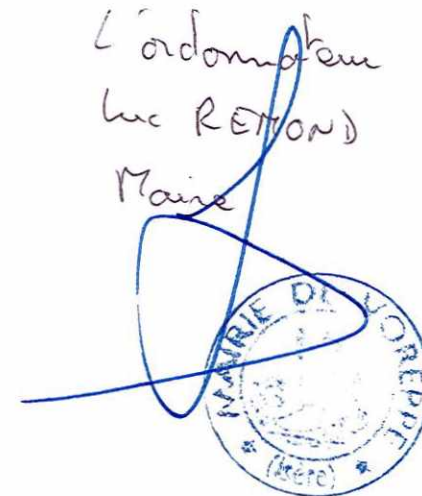 L'ordonnateur
Luc REMOND
Maire
MAIRIE DE VOREPPE
(Isère)